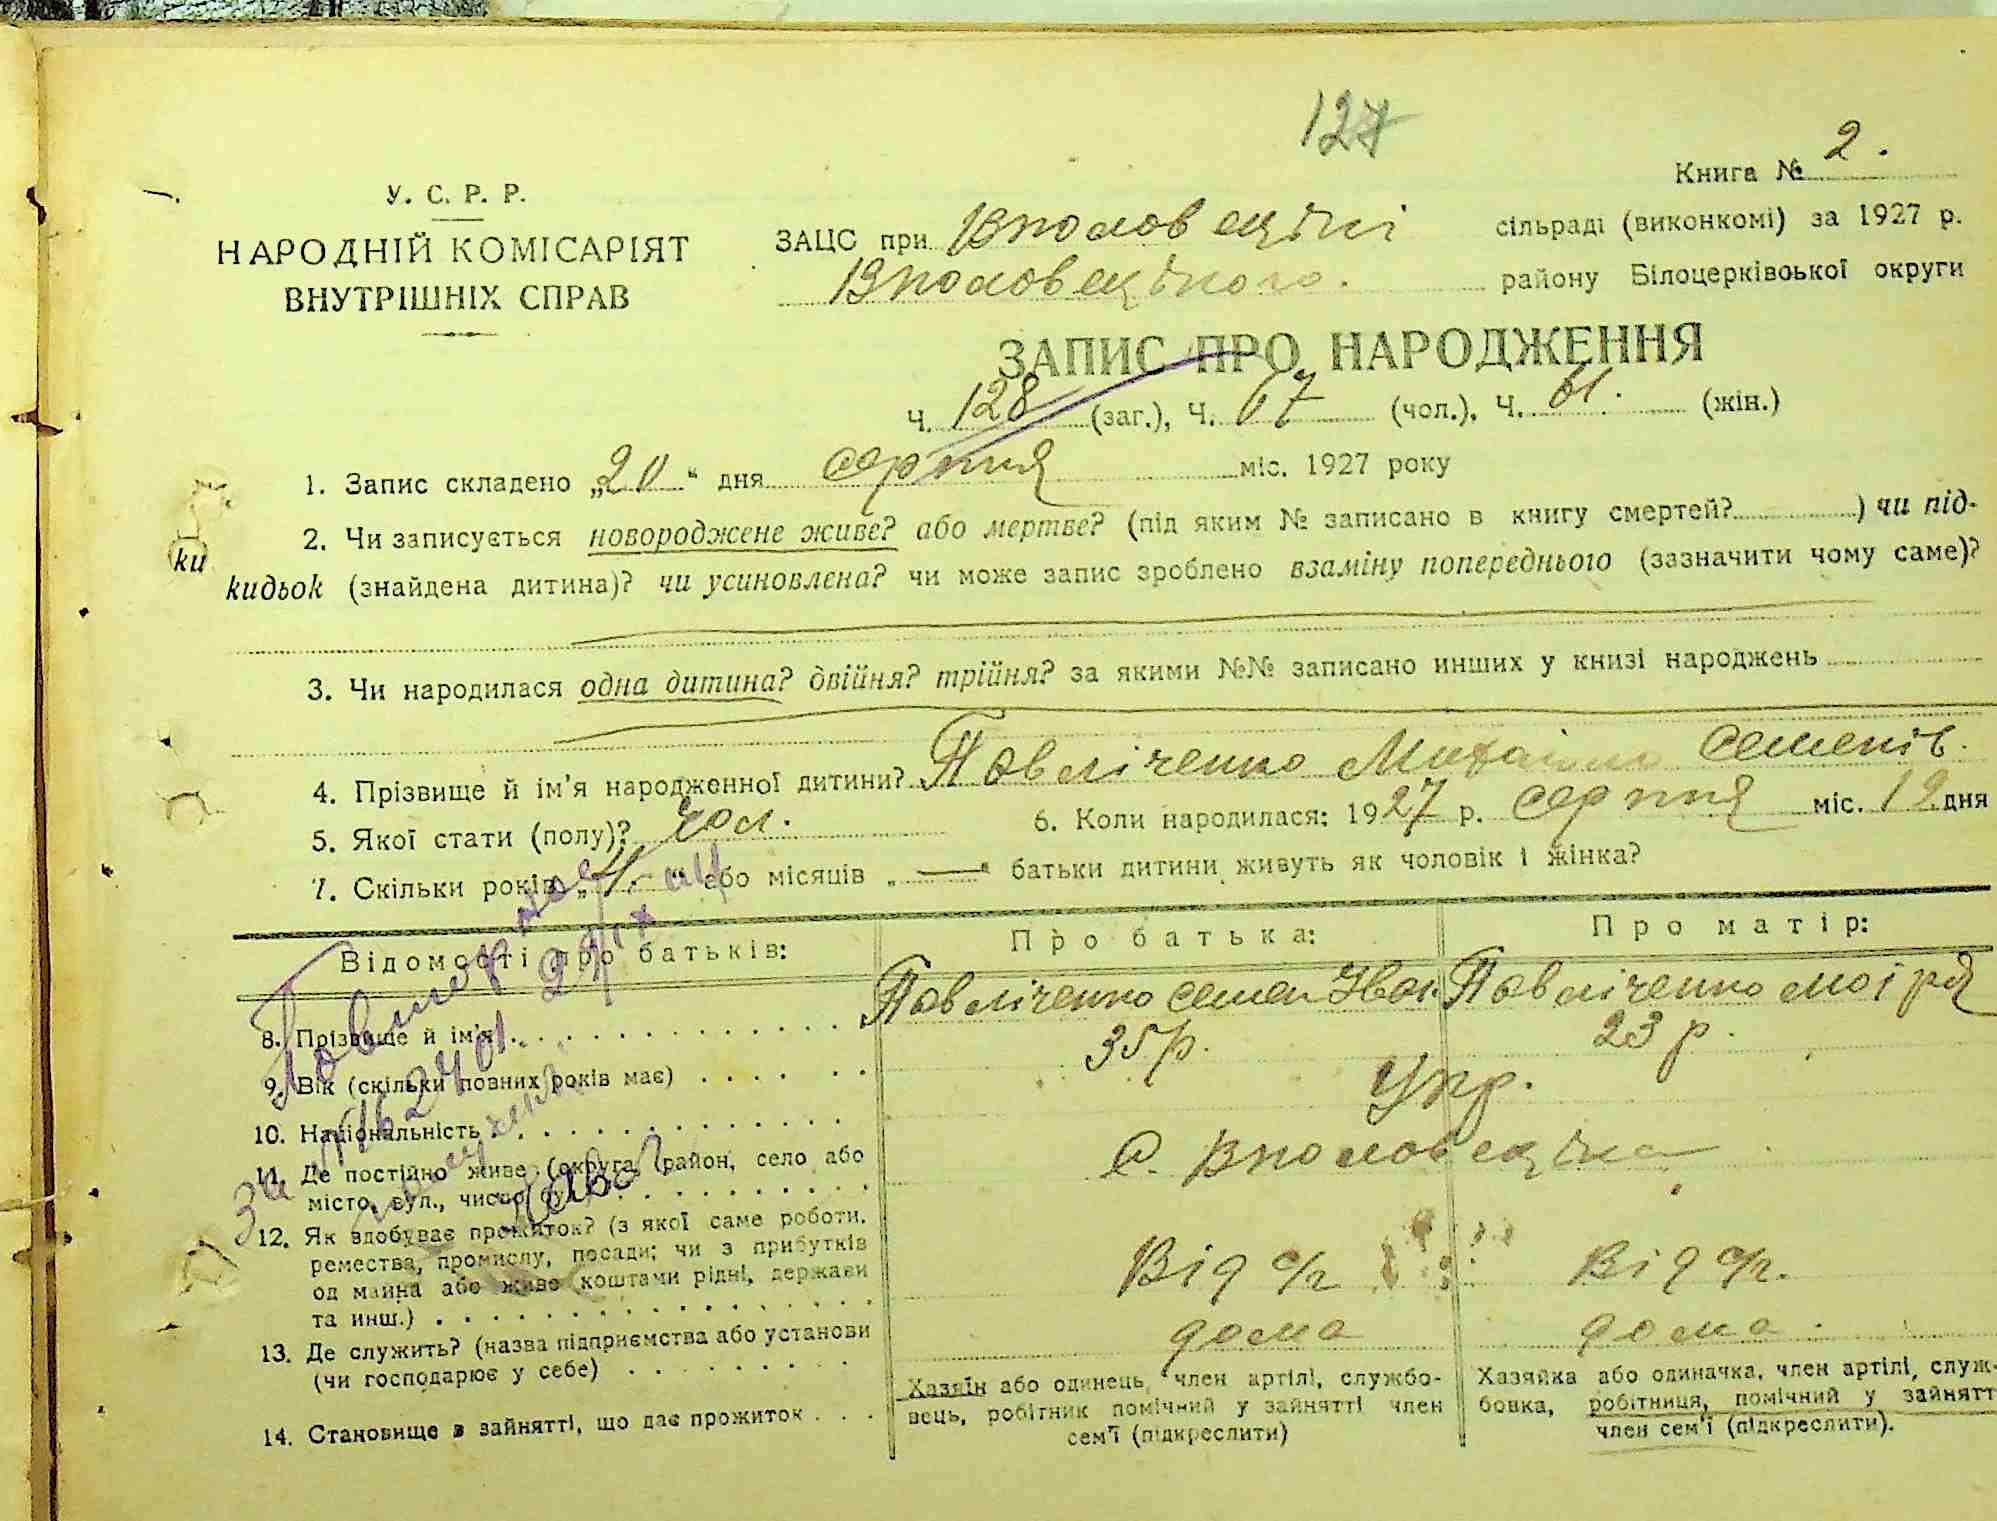 127
Книга № 2.
У. С. Р. Р.
НАРОДНІЙ КОМІСАРІЯТ
ВНУТРІШНІХ СПРАВ
ЗАЦС при Вполовецькі сільраді (виконкомі) за 1927 р.
Вполовецького. району Білоцерківської округи
ЗАПИС ПРО НАРОДЖЕННЯ
Ч. 128 (заг.), Ч. 67 (чол.), Ч. 61. (жін.)
1. Запис складено „20“ дня серпня міс. 1927 року
2. Чи записується новороджене живе? або мертве? (під яким № записано в книгу смертей? ) чи під-
ки
кидьок (знайдена дитина)? чи усиновлена? чи може запис зроблено взаміну попереднього (зазначити чому саме)?
3. Чи народилася одна дитина? двійня? трійня? за якими №№ записано инших у книзі народжень
4. Прізвище й ім'я народженної дитини? Павліченко Михайло Семенів.
5. Якої стати (полу)? Чол. 6. Коли народилася: 1927 р. серпня міс. 19 дня
7. Скільки років „4.“ або місяців „—“ батьки дитини живуть як чоловік і жінка?
Відомості про батьків: Про батька: Про матір:
8. Прізвище й ім'я Павліченко Семен Іван. Павліченко Марія
9. Вік (скільки повних років має) 35 р. 23 р.
10. Національність Укр.
11. Де постійно живе (округа, район, село або
місто, вул., число буд. С. Вполовецька
12. Як здобуває прожиток? (з якої саме роботи,
ремества, промислу, посади; чи з прибутків
од майна або живе коштами рідні, держави
та инш.) Від с/г Від с/г.
13. Де служить? (назва підприємства або установи
(чи господарює у себе) дома дома
14. Становище в зайнятті, що дає прожиток
Хазяїн або одинець, член артілі, службо-
вець, робітник помічний у зайнятті член
сем'ї (підкреслити)
Хазяйка або одиначка, член артілі, служ-
бовка, робітниця, помічний у зайнятт
член сем'ї (підкреслити).
Повторное
29/IX
за № 162401